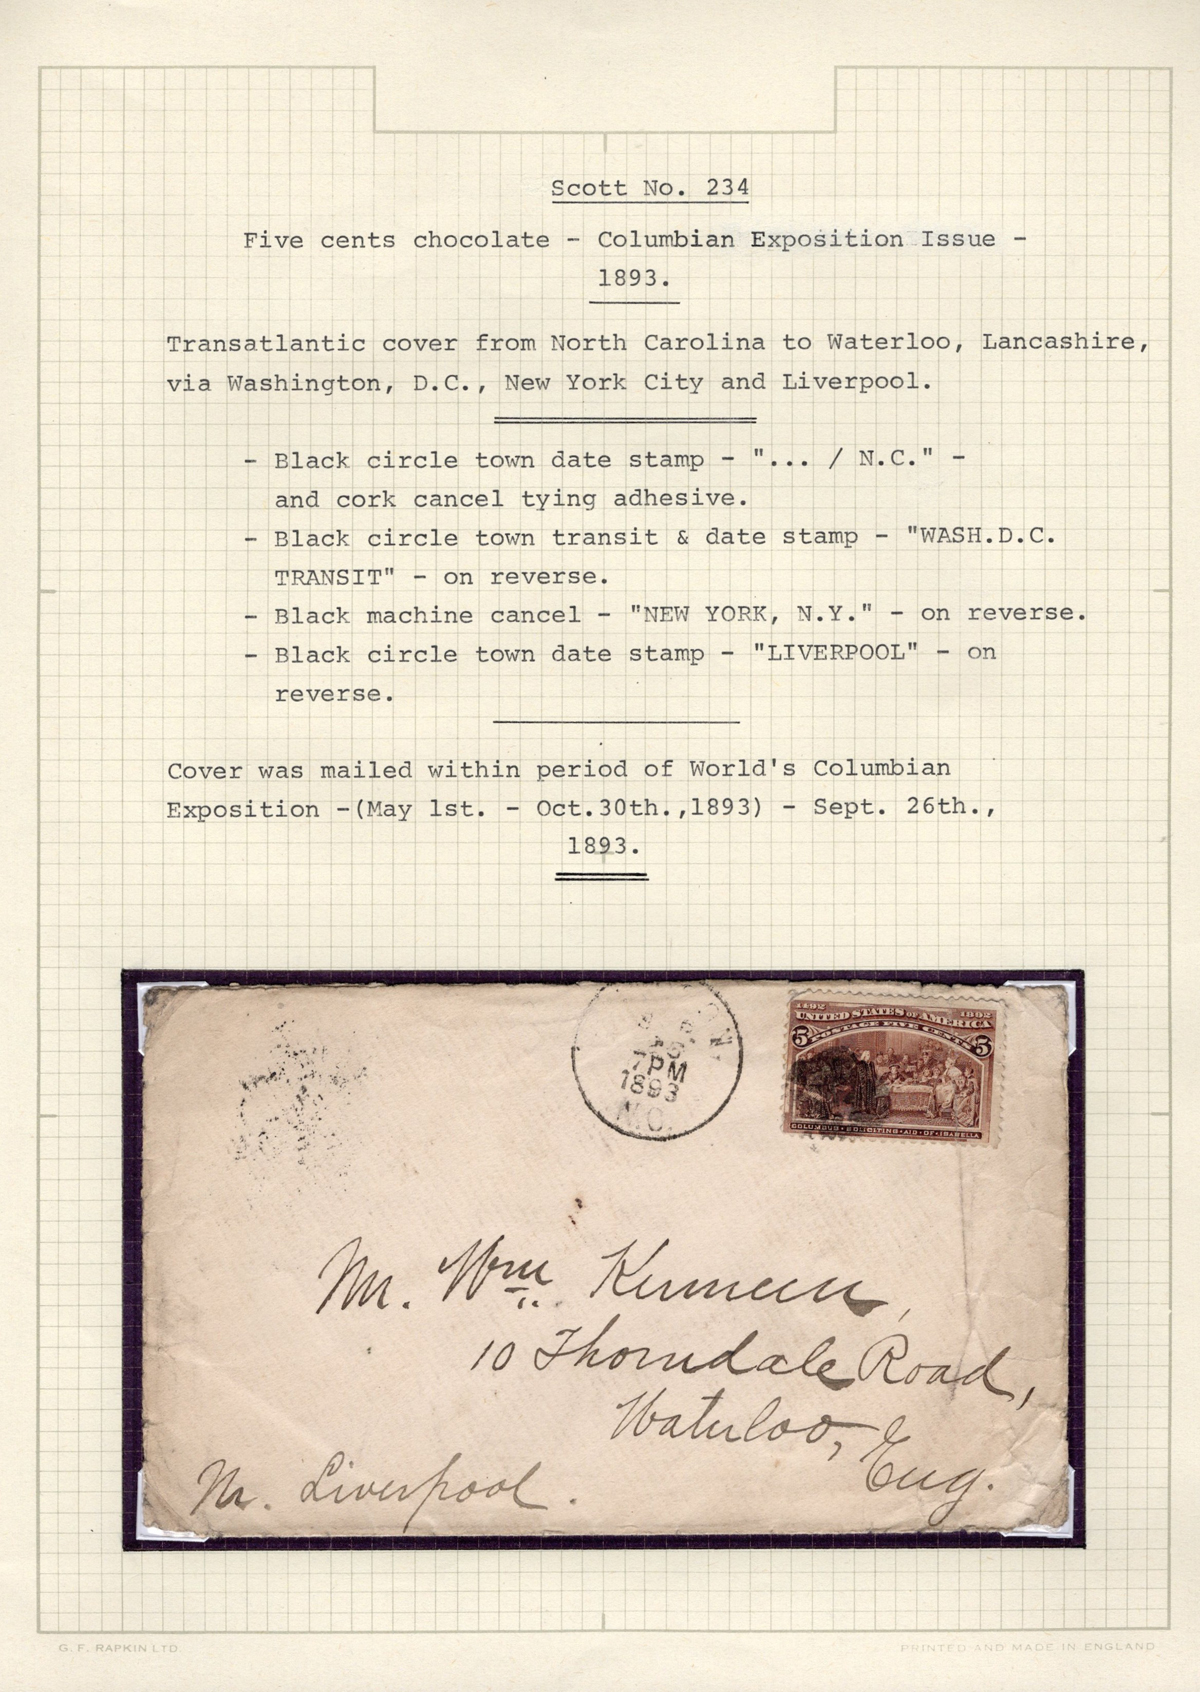 Scott No. 234
Five cents chocolate - Columbian Exposition Issue -
1893.
Transatlantic cover from North Carolina to Waterloo, Lancashire,
via Washington, D.C., New York City and Liverpool.
- Black circle town date stamp - "... / N.C." -
and cork cancel tying adhesive.
- Black circle town transit & date stamp - "WASH.D.C.
TRANSIT" - on reverse.
- Black machine cancel - "NEW YORK, N.Y." - on reverse.
- Black circle town date stamp - "LIVERPOOL" - on
reverse.
Cover was mailed within period of World's Columbian
Exposition -(May 1st. - Oct.30th.,1893) - Sept. 26th.,
1893.
7PM
1893
N.C.
1492 1892
UNITED STATES OF AMERICA
5 POSTAGE FIVE CENTS 5
COLUMBUS SOLICITING AID OF ISABELLA
Mr. Wm
10 Thorndale Road,
Waterloo, Eng.
Nr. Liverpool.
G. F. RAPKIN LTD.
PRINTED AND MADE IN ENGLAND